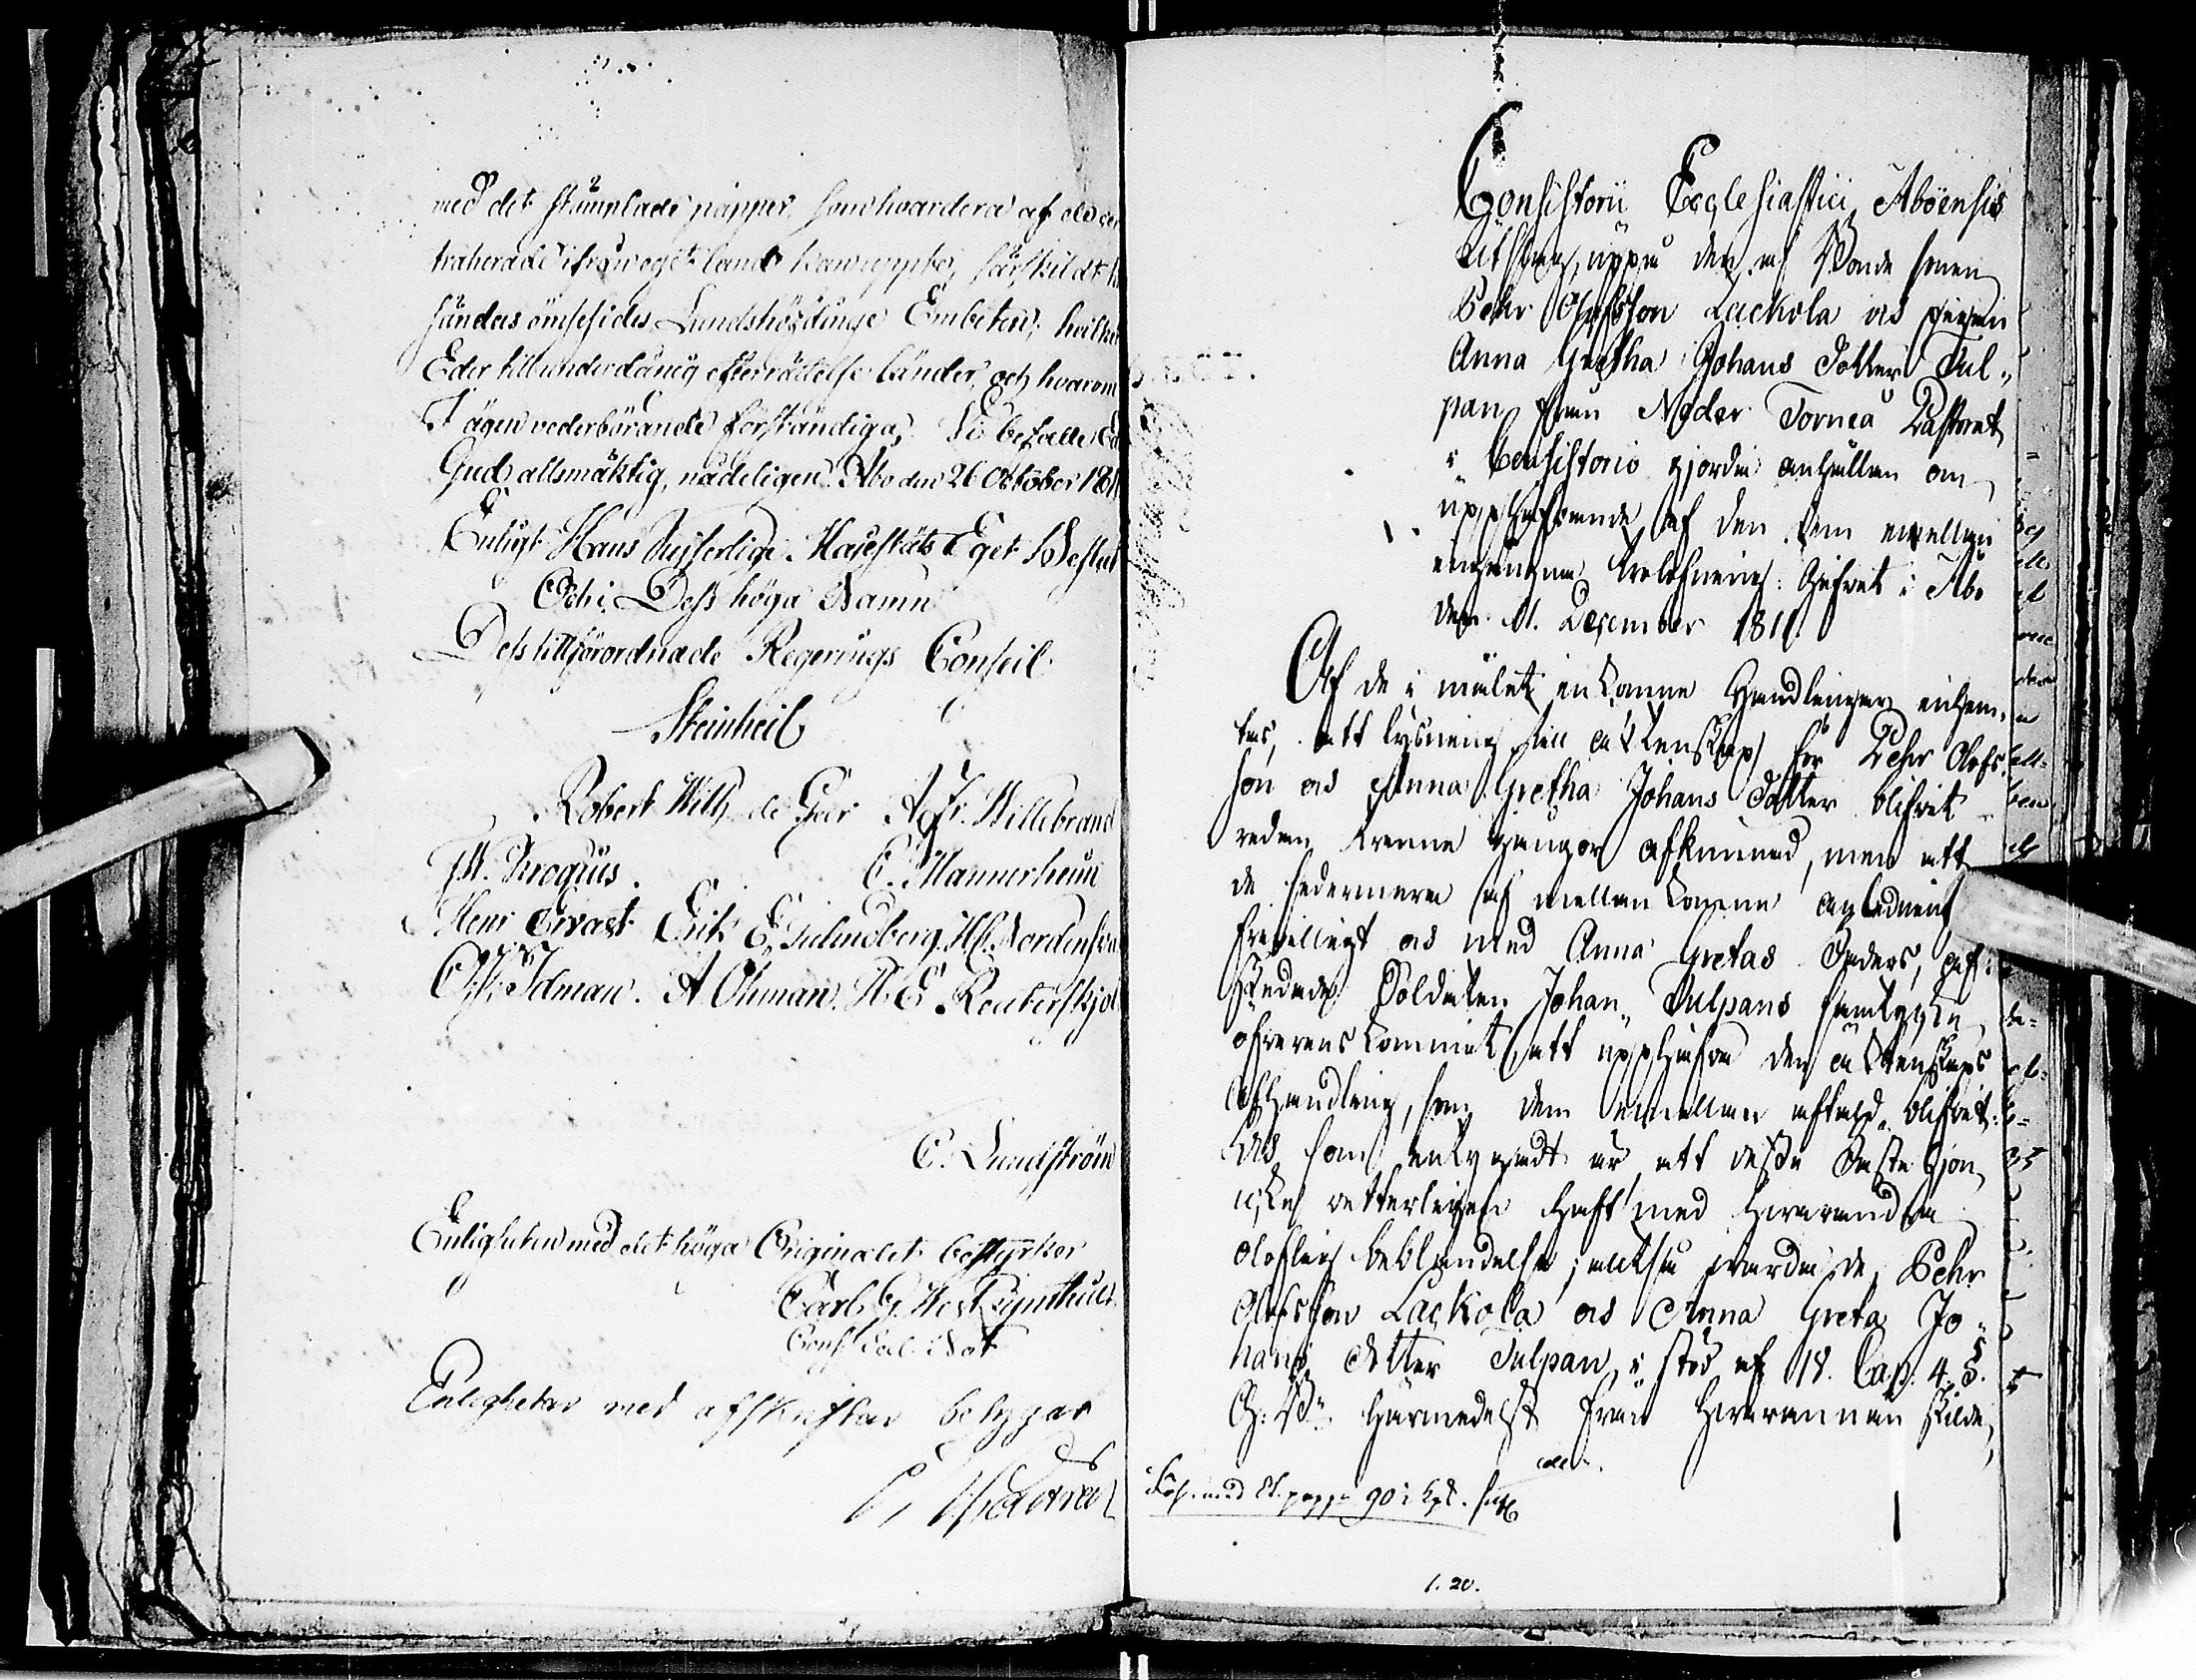 med det stämplade papper som hvardera af de con
traherade ifrån eget land kan uppte, särskildt til
sändas ömsesides Landshöfdinge Embeten; hvilket
Eder till underdånig efterrättelse länder, och hvarom
I ägen vederbörande förständiga, Vi befalle Eder
Gud allsmäktig, nådeligen. Åbo den 26 October 181
Enligt Hans Kejserlige Majestäts Eget Beslut
Och i Dess höga Namn
Dess tillförordnade Regerings Conseil
Steinheil
Robert Wilh. de Geer A Fr. Willebrand
M. Krogius. C. Mannerheim
Henr Ervast Erik E. Gulindberg. Hk. Nordensva
C. Fr. Idman. A Ohman. H. E. Reuterskjol
C. Lundström
Enligheten med det höga Originalet bestyrker
Carl G. Westzynthius
Cons: Eccl. Not
Enligheten med afskriften betygar
Consistorii Ecclesiastici Aboënsis
Utslag, uppå den af Bonde sonen
Pehr Olofsson Lackola och pigan
Anna Gretha Johans dotter Tul„
pan från Neder Torneå Pastorat
i Consistorio gjorde anhållan om
upphäfvande af den dem emellan
eingångne trolofning: Gifvet i Åbo
den 11. December 1811.
Af de i målet inkomne Handlingar inhäm„
tas, att lysning till äktenskap för Pehr Olofs
son och Anna Gretha Johans Dotter blifvit
redan trenne gångor afkunnad, men att
de sedermera af mellankomne anledning
frivilligt och med Anna Gretas Faders, afske
dade Soldaten Johan Tulpans samtycke
öfverens kommit, att upphäfva den äktenskaps
afhandling, som dem emellan aftald blifvit:
Och som intygadt är att desse Fästehjon
icke vetterligen haft med hvarandra
olofligt beblandelse; altså warda de, Pehr
Olofsson Lackola och Anna Greta Jo„
hans dotter Tulpan, i stöd af 18. Cap: 4. §.
G: B: härmedelst från hvarannan skilde,
Lös. med St. papp. 90 i Kpk.
1. 20.